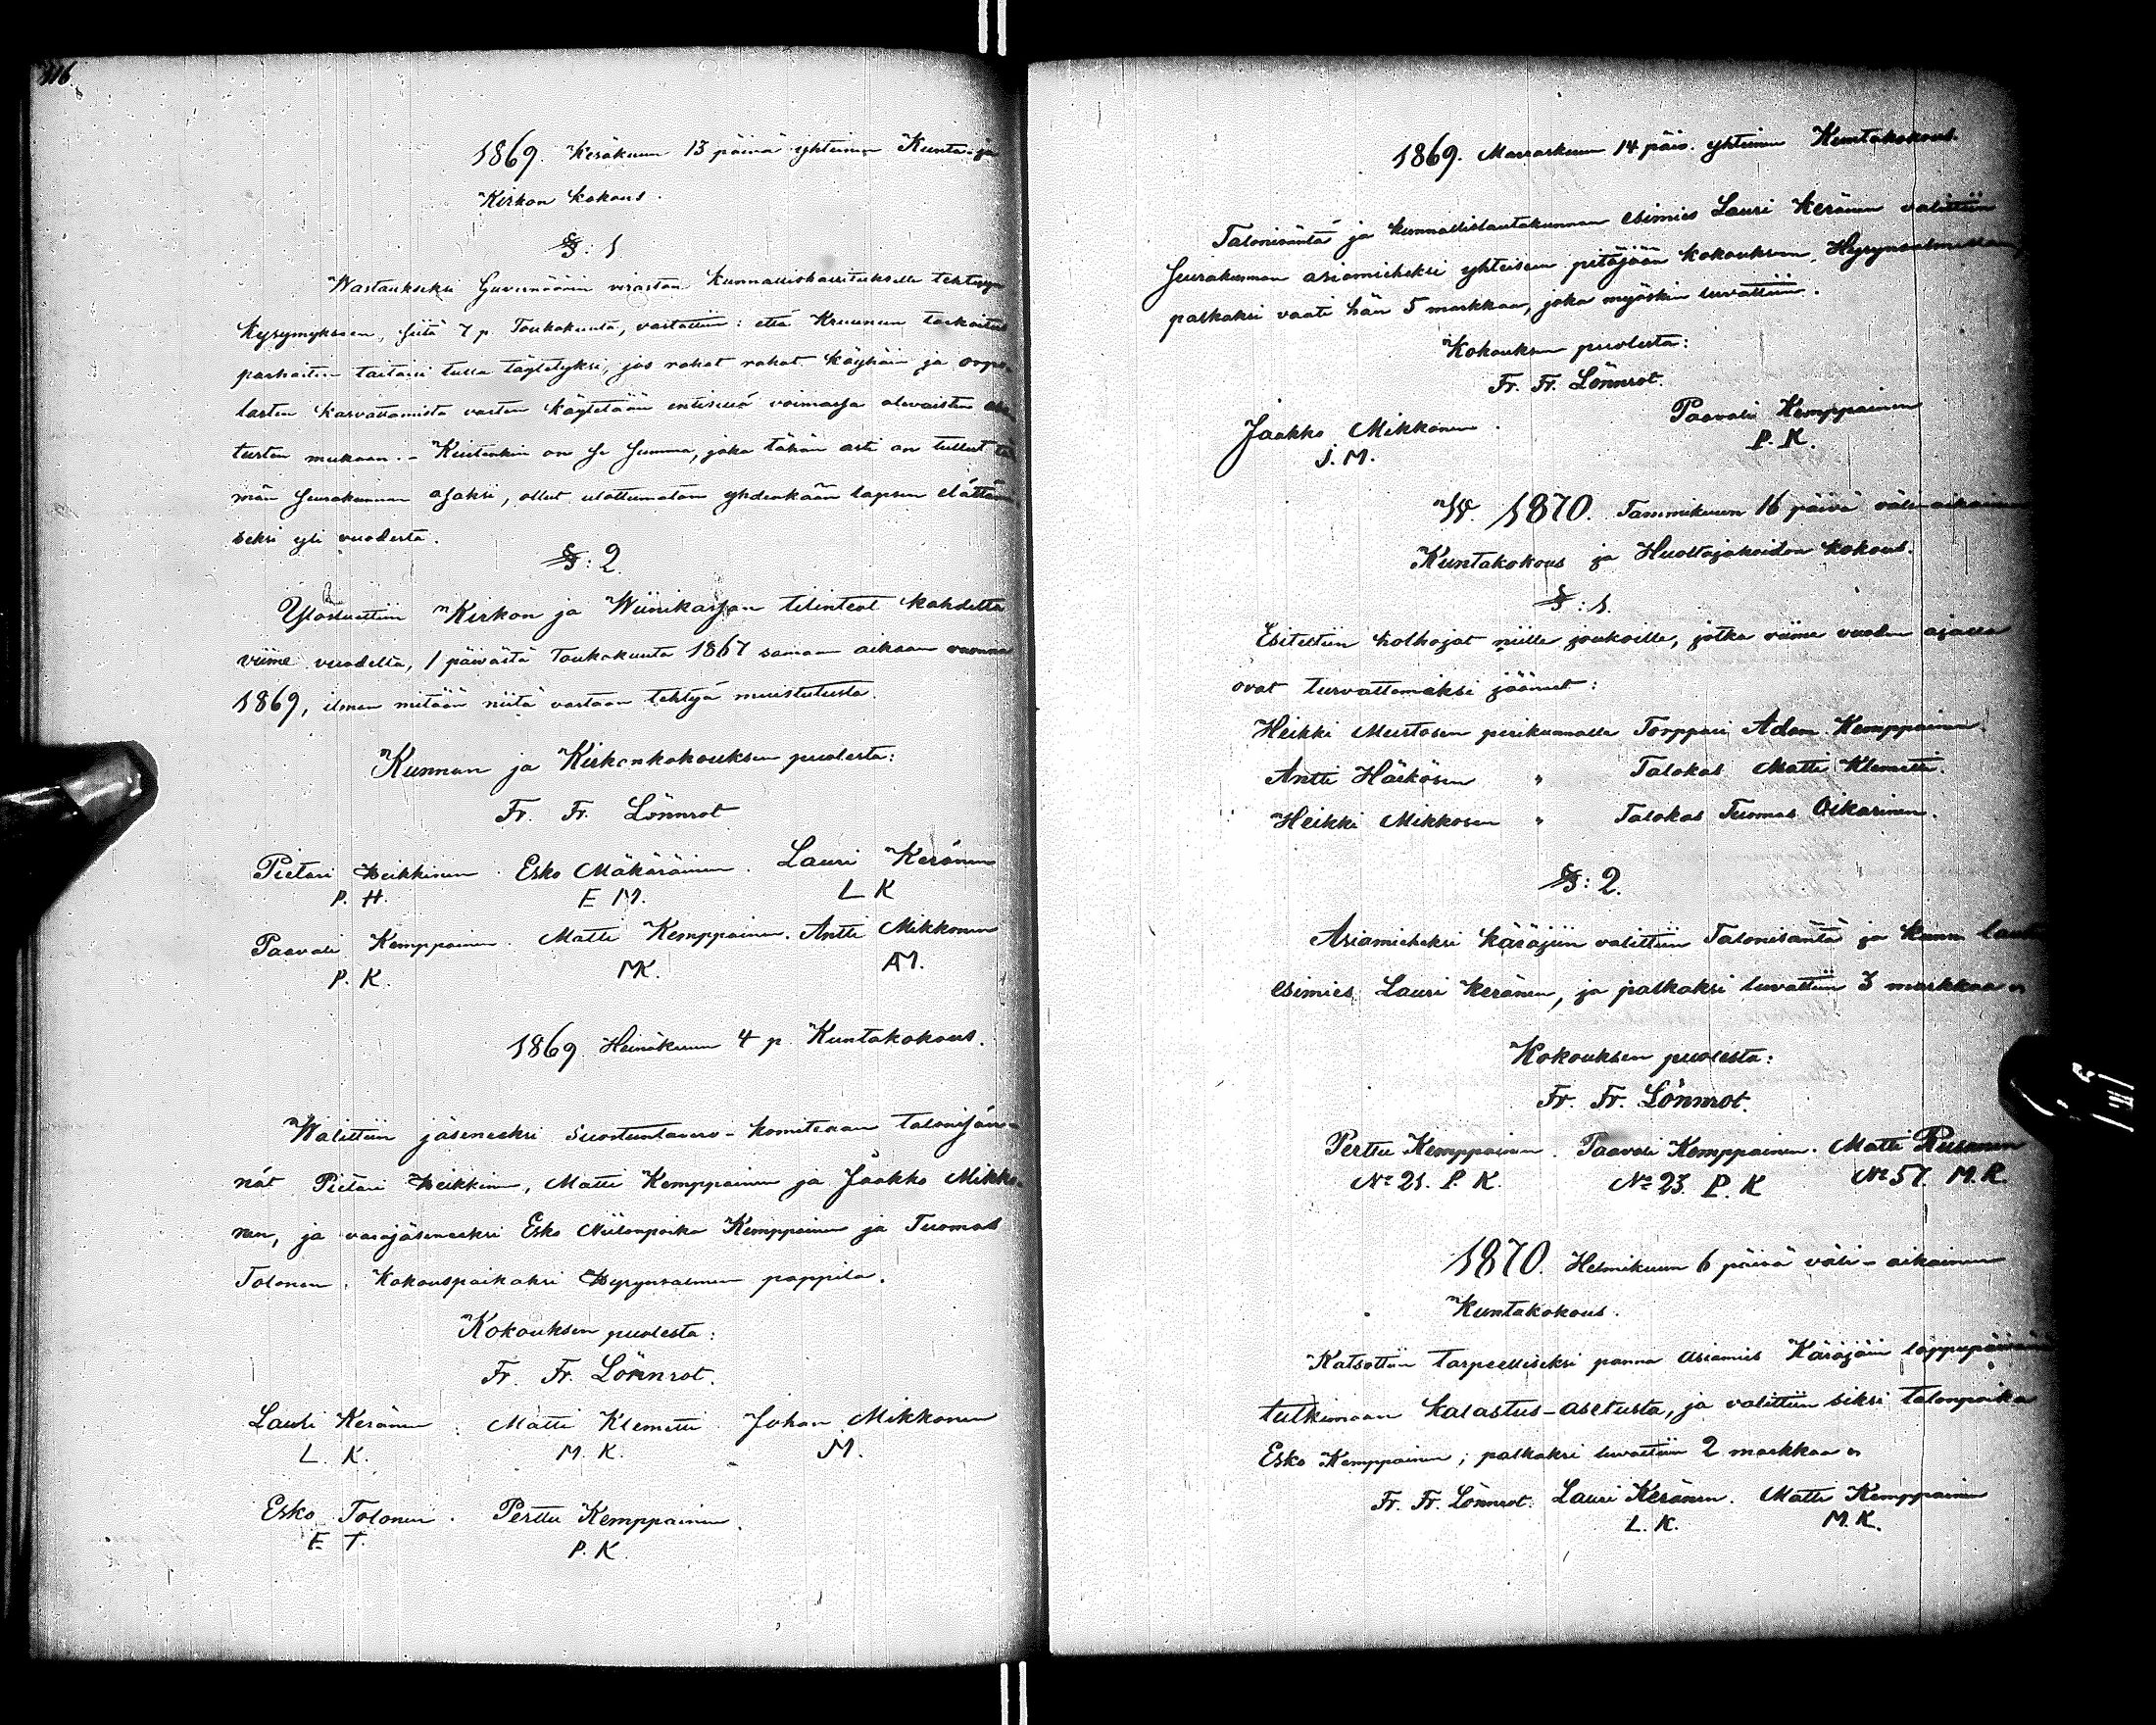 116.
1869. Kesäkuun 13 päivä yhteinen Kunta- ja
Kirkon kokous.
§: 1
Wastaukseksi Guvernöörin viraston Kunnallishallitukselle tehtyyn
kysymykseen, siitä 7 p. Toukokuuta, vastattiin: että Kruunun tarkoitus
parhaiten taitaisi tulla täytetyksi, jos rahat rahat köyhäin ja orpo-
lasten kasvattamista varten käytetään entisessä voimassa olevaisten ase-
tusten mukaan. – Kuitenkin on se summa, joka tähän asti on tullut tä-
män seurakunnan osaksi, ollut ulottumaton yhdenkään lapsen elättämi-
seksi yli vuodesta.
§: 2.
Ylösluettiin Kirkon ja Wiinikassan tilinteot kahdelta
viime vuodelta, 1 päivästä Toukokuuta 1867 samaan aikaan vuonna
1869, ilman mitään niitä vastaan tehtyä muistutusta.
Kunnan ja Kirkonkokouksen puolesta:
Fr. Fr. Lönnrot
Pietari Heikkinen. Esko Mäkäräinen. Lauri Keränen
P. H. E M. L K
Paavali Kemppainen. Matti Kemppainen. Antti Mikkonen
P. K. MK. AM.
1869. Heinäkuun 4 p. Kuntakokous.
Walittiin jäseneksi Suostuntavero-komiteaan talonisän-
nät Pietari Heikkinen, Matti Kemppainen ja Jaakko Mikko-
nen, ja varajäseneksi Esko Niilonpoika Kemppainen ja Tuomas
Tolonen. Kokouspaikaksi Hyrynsalmen pappila.
Kokouksen puolesta:
Fr. Fr. Lönnrot.
Lauri Keränen. Matti Klemetti. Johan Mikkonen
L. K. M. K. J.M.
Esko Tolonen. Perttu Kemppainen.
E T. P. K.
1869. Marraskuun 14 päiv. yhteinen Kuntakokous.
Talonisäntä ja kunnallislautakunnan esimies Lauri Keränen valittiin
seurakunnan asiamieheksi yhteiseen pitäjään kokoukseen Hyrynsalmella,
palkaksi vaati hän 5 markkaa, joka myöskin luvattiin.
Kokouksen puolesta:
Fr. Fr. Lönnrot.
Jaakko Mikkonen. Paavali Kemppainen
J. M. P. K.
W. 1870. Tammikuun 16 päivä väli-aikainen
Kuntakokous ja Huoltajakoidon kokous.
§: 1.
Esitettiin holhojat niille joukoille, jotka viime vuoden ajalla
ovat turvattomaksi jääneet:
Heikki Mustosen perikunnalle Torppari Adam Kemppainen.
Antti Härkösen " Talokas Matti Klemetti.
Heikki Mikkosen " Talokas Tuomas Oikarinen.
§: 2.
Asiamieheksi Käräjiin valittiin Talonisäntä ja kunn. lauta
esimies Lauri Keränen, ja palkaksi luvattiin 3 markkaa
Kokouksen puolesta:
Fr. Fr. Lönnrot.
Perttu Kemppainen. Paavali Kemppainen. Matti Rusanen
No 21. P. K. No 23. P. K No 57. M. R.
1870. Helmikuun 6 päivä väli-aikainen
Kuntakokous.
Katsottiin tarpeelliseksi panna asiamies Käräjäin loppupäivänä
tutkimaan kalastus-asetusta, ja valittiin siksi talonpoika
Esko Kemppainen; palkaksi luvattiin 2 markkaa
Fr. Fr. Lönnrot. Lauri Keränen. Matti Kemppainen
L. K. M. K.